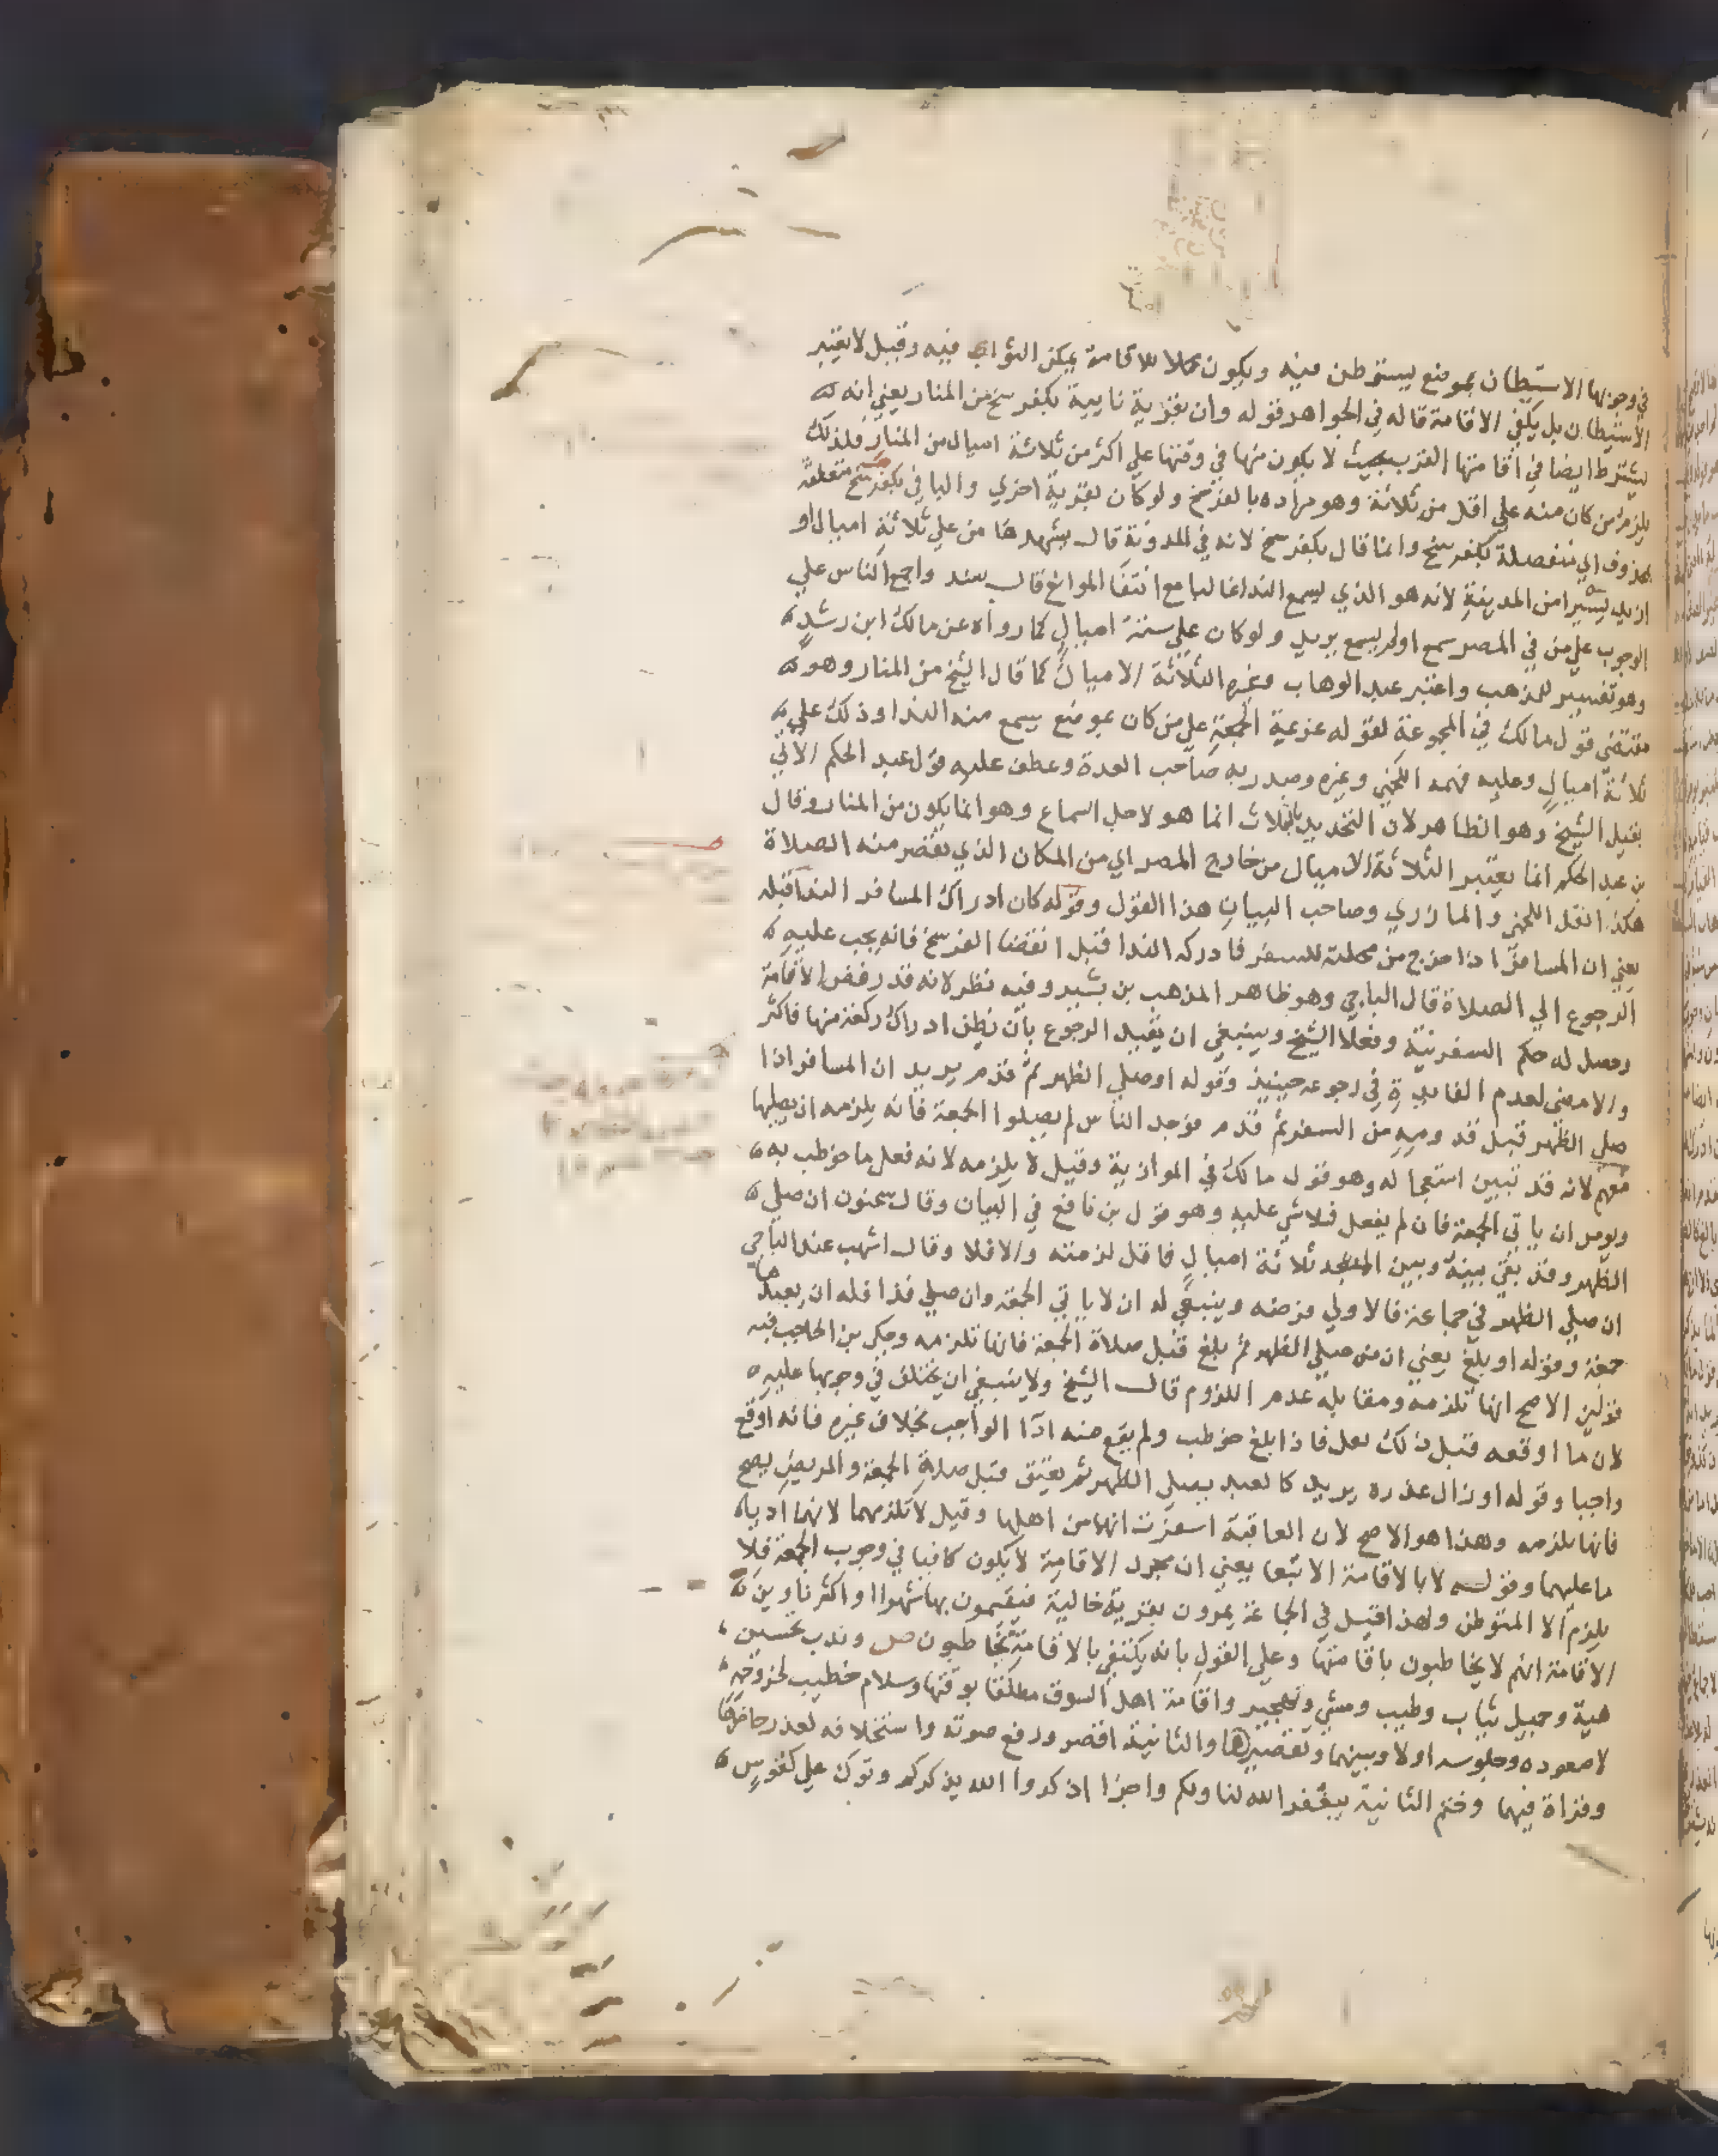 في وجوبها الاستيطان بموضع يستوطن فيه ويكون محلا للاقامة يمكن الثواي فيه وقيل لا يعتبر
الاستيطان بل يكفي الاقامة قاله في الجواهر قوله وان بقرية نايية بكفرسخ من المنار يعني انه
يشترط ايضا في اقامتها القرب بحيث لا يكون منها في وقتها علي اكثر من ثلاثة اميال من المنار فلذلك
يلزم من كان منه علي اقل من ثلاثة وهو مراده بالفرسخ ولو كان بقرية اخري والبا في بكفرسخ متعلقة
بمحذوف اي منفصلة بكفرسخ وانما قال بكفرسخ لانه في المدونة قال يشهدها من علي ثلاثة اميال او
ازيد يسيرا من المدينة لانه هو الذي يسمع الندا غالبا مع انتفا الموانع قال سند واجمع الناس علي
الوجوب علي من في المصر سمع اولم يسمع يريد ولو كان علي ستة اميال كما رواه عن مالك ابن رشد
وهو تفسير للمذهب واعتبر عبد الوهاب وغيره الثلاثة الاميال كما قال الشيخ من المنار وهو
مقتضى قول مالك في المجموعة لقوله عزيمة الجمعة علي من كان بموضع يسمع منه الندا وذلك علي
ثلاثة اميال وعليه فهمه اللخمي وغيره وصدر به صاحب العمدة وعطف عليه قول عبد الحكم الاتي
بقيل الشيخ وهو الظاهر لان التحديد بالثلاث انما هو لاجل السماع وهو انما يكون من المنار وقال
بن عبد الحكم انما يعتبر الثلاثة الاميال من خارج المصر اي من المكان الذي تقصر منه الصلاة
هكذا نقل اللخمي والمازري وصاحب البيان هذا القول وقوله كان ادراك المسافر الندا قبله
يعني ان المسافر اذا خرج من محلته للسفر فادركه الندا قبل انقضا الفرسخ فانه يجب عليه
الرجوع الي الصلاة قال الباجي وهو ظاهر المذهب بن بشير وفيه نظر لانه قد رفض الاقامة
وحصل له حكم السفر نية وفعلا الشيخ وينبغي ان يقيد الرجوع بان يظن ادراك ركعة منها فاكثر
والا مضى لعدم الفايدة في رجوعه حينيذ وقوله او صلي الظهر ثم قدم يريد ان المسافر اذا
صلي الظهر قبل قدوميه من السفر ثم قدم فوجد الناس لم يصلوا الجمعة فانه يلزمه ان يصليها
معهم لانه قد تبين استعجاله وهو قول مالك في الموازية وقيل لا يلزمه لانه فعل ما خوطب به
ويومر ان ياتي الجمعة فان لم يفعل فلا شي عليه وهو قول بن نافع في البيان وقال سحنون ان صلي
الظهر وقد بقي بينه وبين المسجد ثلاثة اميال فاقل لزمته والا فلا وقال اشهب عند الباجي
ان صلي الظهر في جماعة فالاولي فرضه وينبغي له ان لا ياتي الجمعة وان صلي فذا فله ان يعيدها
جمعة وقوله او بلغ يعني ان من صلي الظهر ثم بلغ قبل صلاة الجمعة فانها تلزمه وحكي بن الحاجب فيه
قولين الاصح انها تلزمه ومقابله عدم اللزوم قال الشيخ ولا ينبغي ان يختلف في وجوبها عليه
لان ما اوقعه قبل ذلك نفل فاذا بلغ خوطب ولم يقع منه ادا الواجب بخلاف غيره فانه اوقع
واجبا وقوله او زال عذره يريد كالعبد يصلي الظهر ثم يعتق قبل صلاة الجمعة والمريض يصح
فانها تلزمه وهذا هو الاصح لان العاقبة اسفرت انهما من اهلها وقيل لا تلزمهما لانهما اديا
ما عليهما وقوله لا بالاقامة الا تبعا يعني ان مجرد الاقامة لا يكون كافيا في وجوب الجمعة فلا
يلزم الا المتوطن ولهذا قيل في الجماعة يمرون بقرية خالية فيقيمون بها شهرا او اكثر ناوين
الاقامة انهم لا يخاطبون باقامتها وعلي القول بانه يكتفي بالاقامة يخاطبون ص وندب تحسين
هيية وجميل ثياب وطيب ومشي وتهجير واقامة اهل السوق مطلقا بوقتها وسلام خطيب لخروجه
لا صعوده وجلوسه اولا وبينهما وتقصيرهما والثانية اقصر ورفع صوته واستخلافه لعذر حاضرها
وقراة فيهما وختم الثانية بيغفر الله لنا ولكم واجزا اذكروا الله يذكركم وتوكى علي كقوس